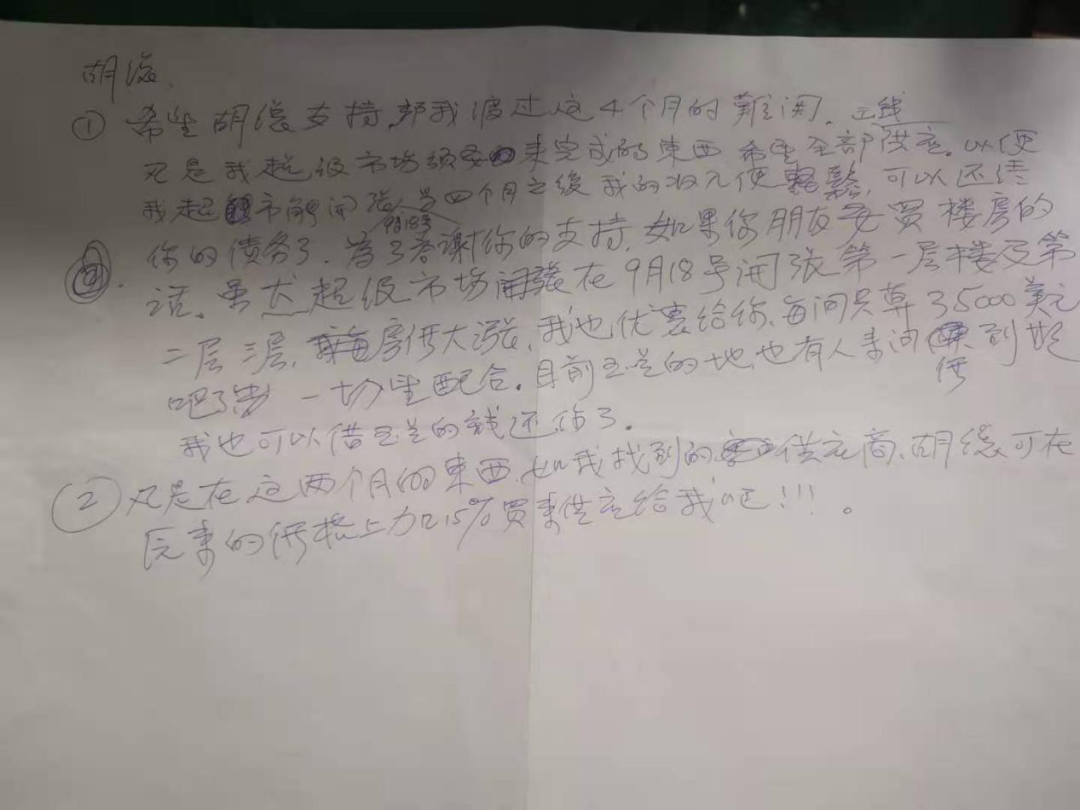 胡總.
① 希望胡總支持,帮我渡过这4个月的難関.
凡是我超级市场 未完成的東西 希望全部供应. 以便
我超市能開张, 四个月之後 我的状况便輕鬆, 可以还清
9月18号
你的债务了. 為了答谢你的支持. 如果你朋友要買楼房的
话. 虽然超级市场開张在9月18号開张第一层楼及第
二层三层, 房价大漲, 我也优惠给你, 每间只算35000美元
吧 一切望配合. 目前 的地, 也有人来问 到
价
我也可以借 的钱还你了.
② 凡是在这两个月的東西, 如我找到的 供应商, 胡總可在
原来的价格上加15%買来供应给我吧!!!。